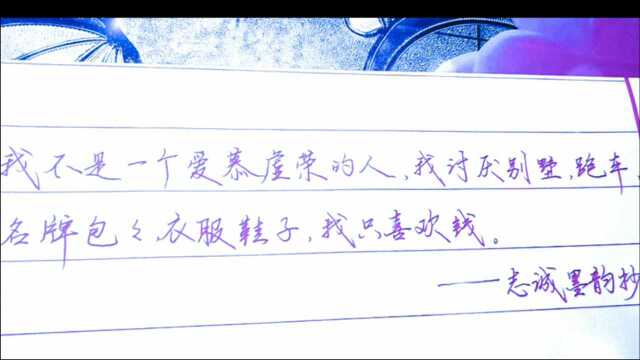 我不是一个爱慕虚荣的人,我讨厌别墅,跑车,
名牌包々,衣服鞋子,我只喜欢钱。
——志诚墨韵抄